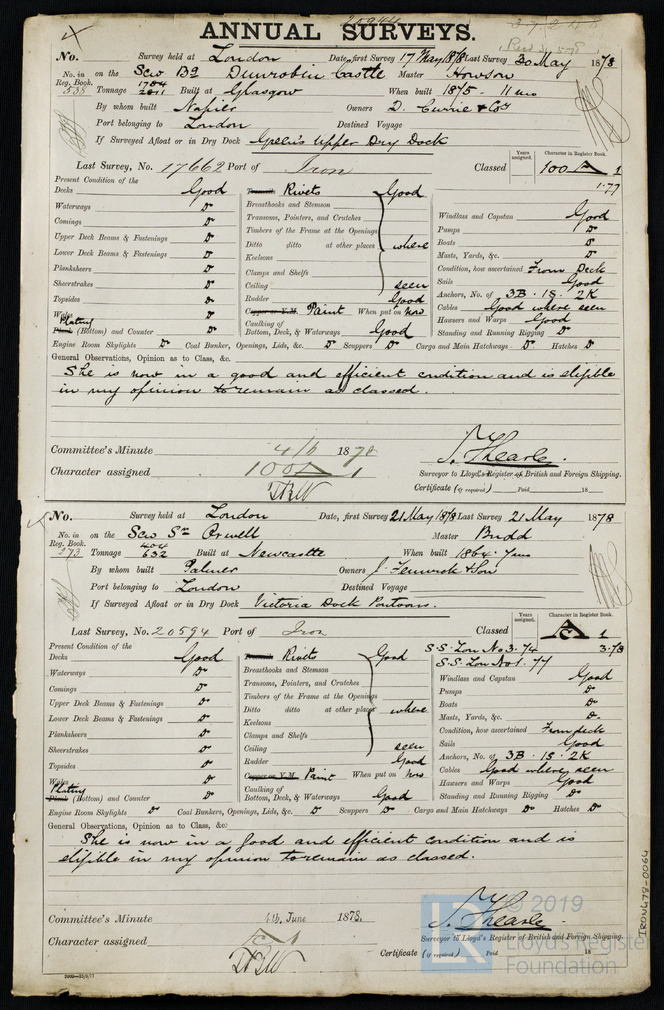 20944
ANNUAL SURVEYS.
No. Survey held at London Date, first Survey 17 May 1878 Last Survey 30 May 1878
No. in on the Scw Bq Dunrobin Castle Master Howson
Reg. Book. 1784
538 Tonnage 2811 Built at Glasgow When built 1875 - 11 mo
By whom built Napier Owners D. Currie & Co
Port belonging to London Destined Voyage
If Surveyed Afloat or in Dry Dock Green's Upper Dry Dock
Years assigned. Character in Register Book.
Last Survey, No. 17662 Port of Iron Classed 100 A 1
1.77
Present Condition of the
Decks Good Rivets Good
Waterways Do Breasthooks and Stemson Windlass and Capstan Good
Comings Do Transoms, Pointers, and Crutches Pumps Do
Upper Deck Beams & Fastenings Do Timbers of the Frame at the Openings Boats Do
Lower Deck Beams & Fastenings Do Ditto ditto at other places where Masts, Yards, &c. Do
Planksheers Do Keelsons Condition, how ascertained From Deck
Sheerstrakes Do Clamps and Shelfs Sails Good
Topsides Do Ceiling seen Anchors, No. of 3B . 1S . 2K
Wales Do Rudder Good Cables Good where seen
Plating Copper or Y.M. Paint When put on now Hawsers and Warps Good
Plank (Bottom) and Counter Do Caulking of Bottom, Deck, & Waterways Good Standing and Running Rigging Do
Engine Room Skylights Do Coal Bunker, Openings, Lids, &c. Do Scuppers Do Cargo and Main Hatchways Do Hatches Do
General Observations, Opinion as to Class, &c.
She is now in a good and efficient condition and is eligible
in my opinion to remain as classed.
Committee's Minute 4/6 1878
Character assigned 100 A 1
Surveyor to Lloyd's Register of British and Foreign Shipping.
Certificate (if required) Paid 18
No. Survey held at London Date, first Survey 21 May 1878 Last Survey 21 May 1878
No. in on the Scw Sr Orwell Master Budd
Reg. Book. 434
273 Tonnage 632 Built at Newcastle When built 1864. 7mo
By whom built Palmer Owners J. Fenwick & Son
Port belonging to London Destined Voyage
If Surveyed Afloat or in Dry Dock Victoria Dock Pontoons.
Years assigned. Character in Register Book.
Last Survey, No. 20594 Port of Iron Classed A 1
S.S. Lon No 3. 74 3.78
S.S. Lon No 1. 77
Present Condition of the
Decks Good Rivets Good
Waterways Do Breasthooks and Stemson Windlass and Capstan Good
Comings Do Transoms, Pointers, and Crutches Pumps Do
Upper Deck Beams & Fastenings Do Timbers of the Frame at the Openings Boats Do
Lower Deck Beams & Fastenings Do Ditto ditto at other places where Masts, Yards, &c. Do
Planksheers Do Keelsons Condition, how ascertained From deck
Sheerstrakes Do Clamps and Shelfs Sails Good
Topsides Do Ceiling seen Anchors, No. of 3B . 1S . 2K
Wales Rudder Good Cables Good where seen
Plating Copper or Y.M. Paint When put on Hawsers and Warps Good
Plank (Bottom) and Counter Do Caulking of Bottom, Deck, & Waterways Good Standing and Running Rigging Do
Engine Room Skylights Do Coal Bunkers, Openings, Lids, &c. Do Scuppers Do Cargo and Main Hatchways Do Hatches Do
General Observations, Opinion as to Class, &c:
She is now in a good and efficient condition and is
eligible in my opinion to remain as classed.
Committee's Minute 4th June 1878.
Character assigned
Surveyor to Lloyd's Register of British and Foreign Shipping.
Certificate (if required) Paid 18
IRON678-0064
© 2019
Lloyd's Register
Foundation